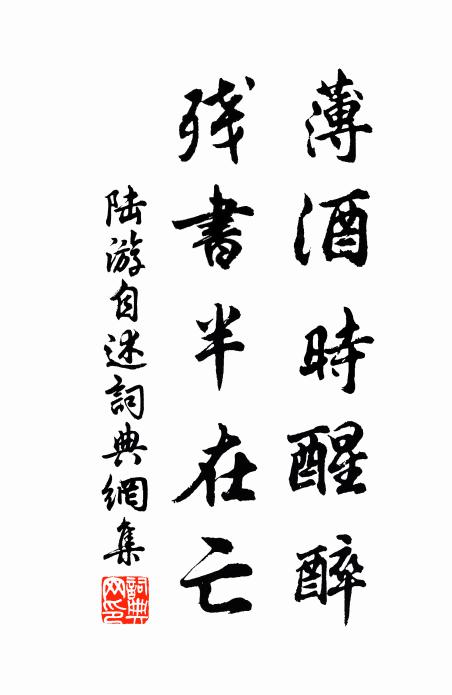 薄酒時醒醉
残書半在亡
陸游自述詞典網集
詞典网印